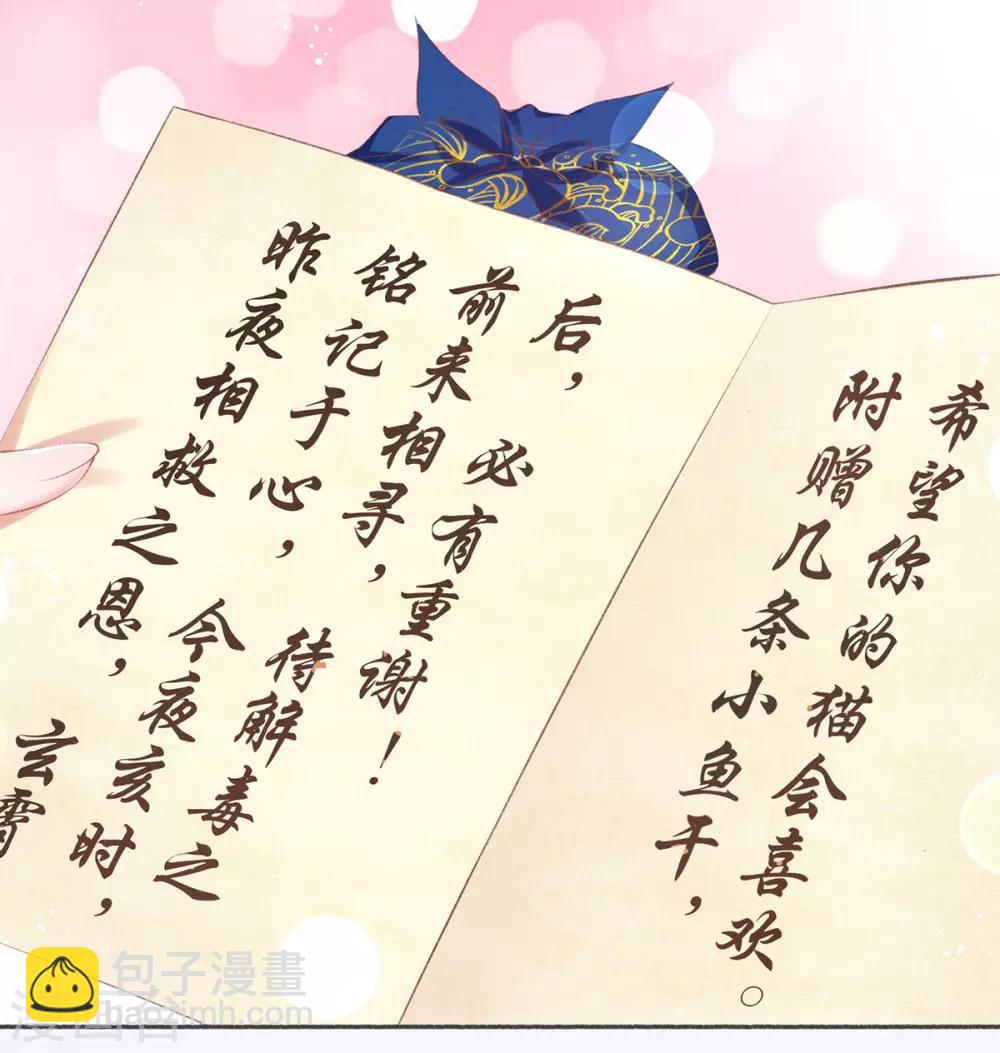 昨夜相救之恩，玄霄
铭记于心，今夜亥时，
前来相寻，待解毒之
后，必有重谢！
附赠几条小鱼干，
希望你的猫会喜欢。
包子漫畫
baozimh.com